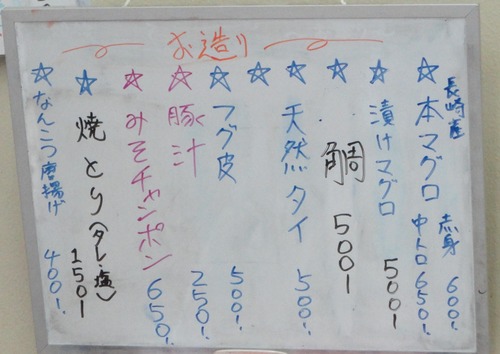 お造り
☆ 本マグロ 長崎産 赤身 600!.
中トロ 650!.
☆ 漬けマグロ 500!
☆ 鯛 500!
☆ 天然タイ 500!.
☆
☆ フグ皮 500!.
☆ 豚汁 250!.
☆ みそチャンポン 650!.
☆ 焼とり(タレ・塩) 150!
☆ なんこつ唐揚げ 400!.